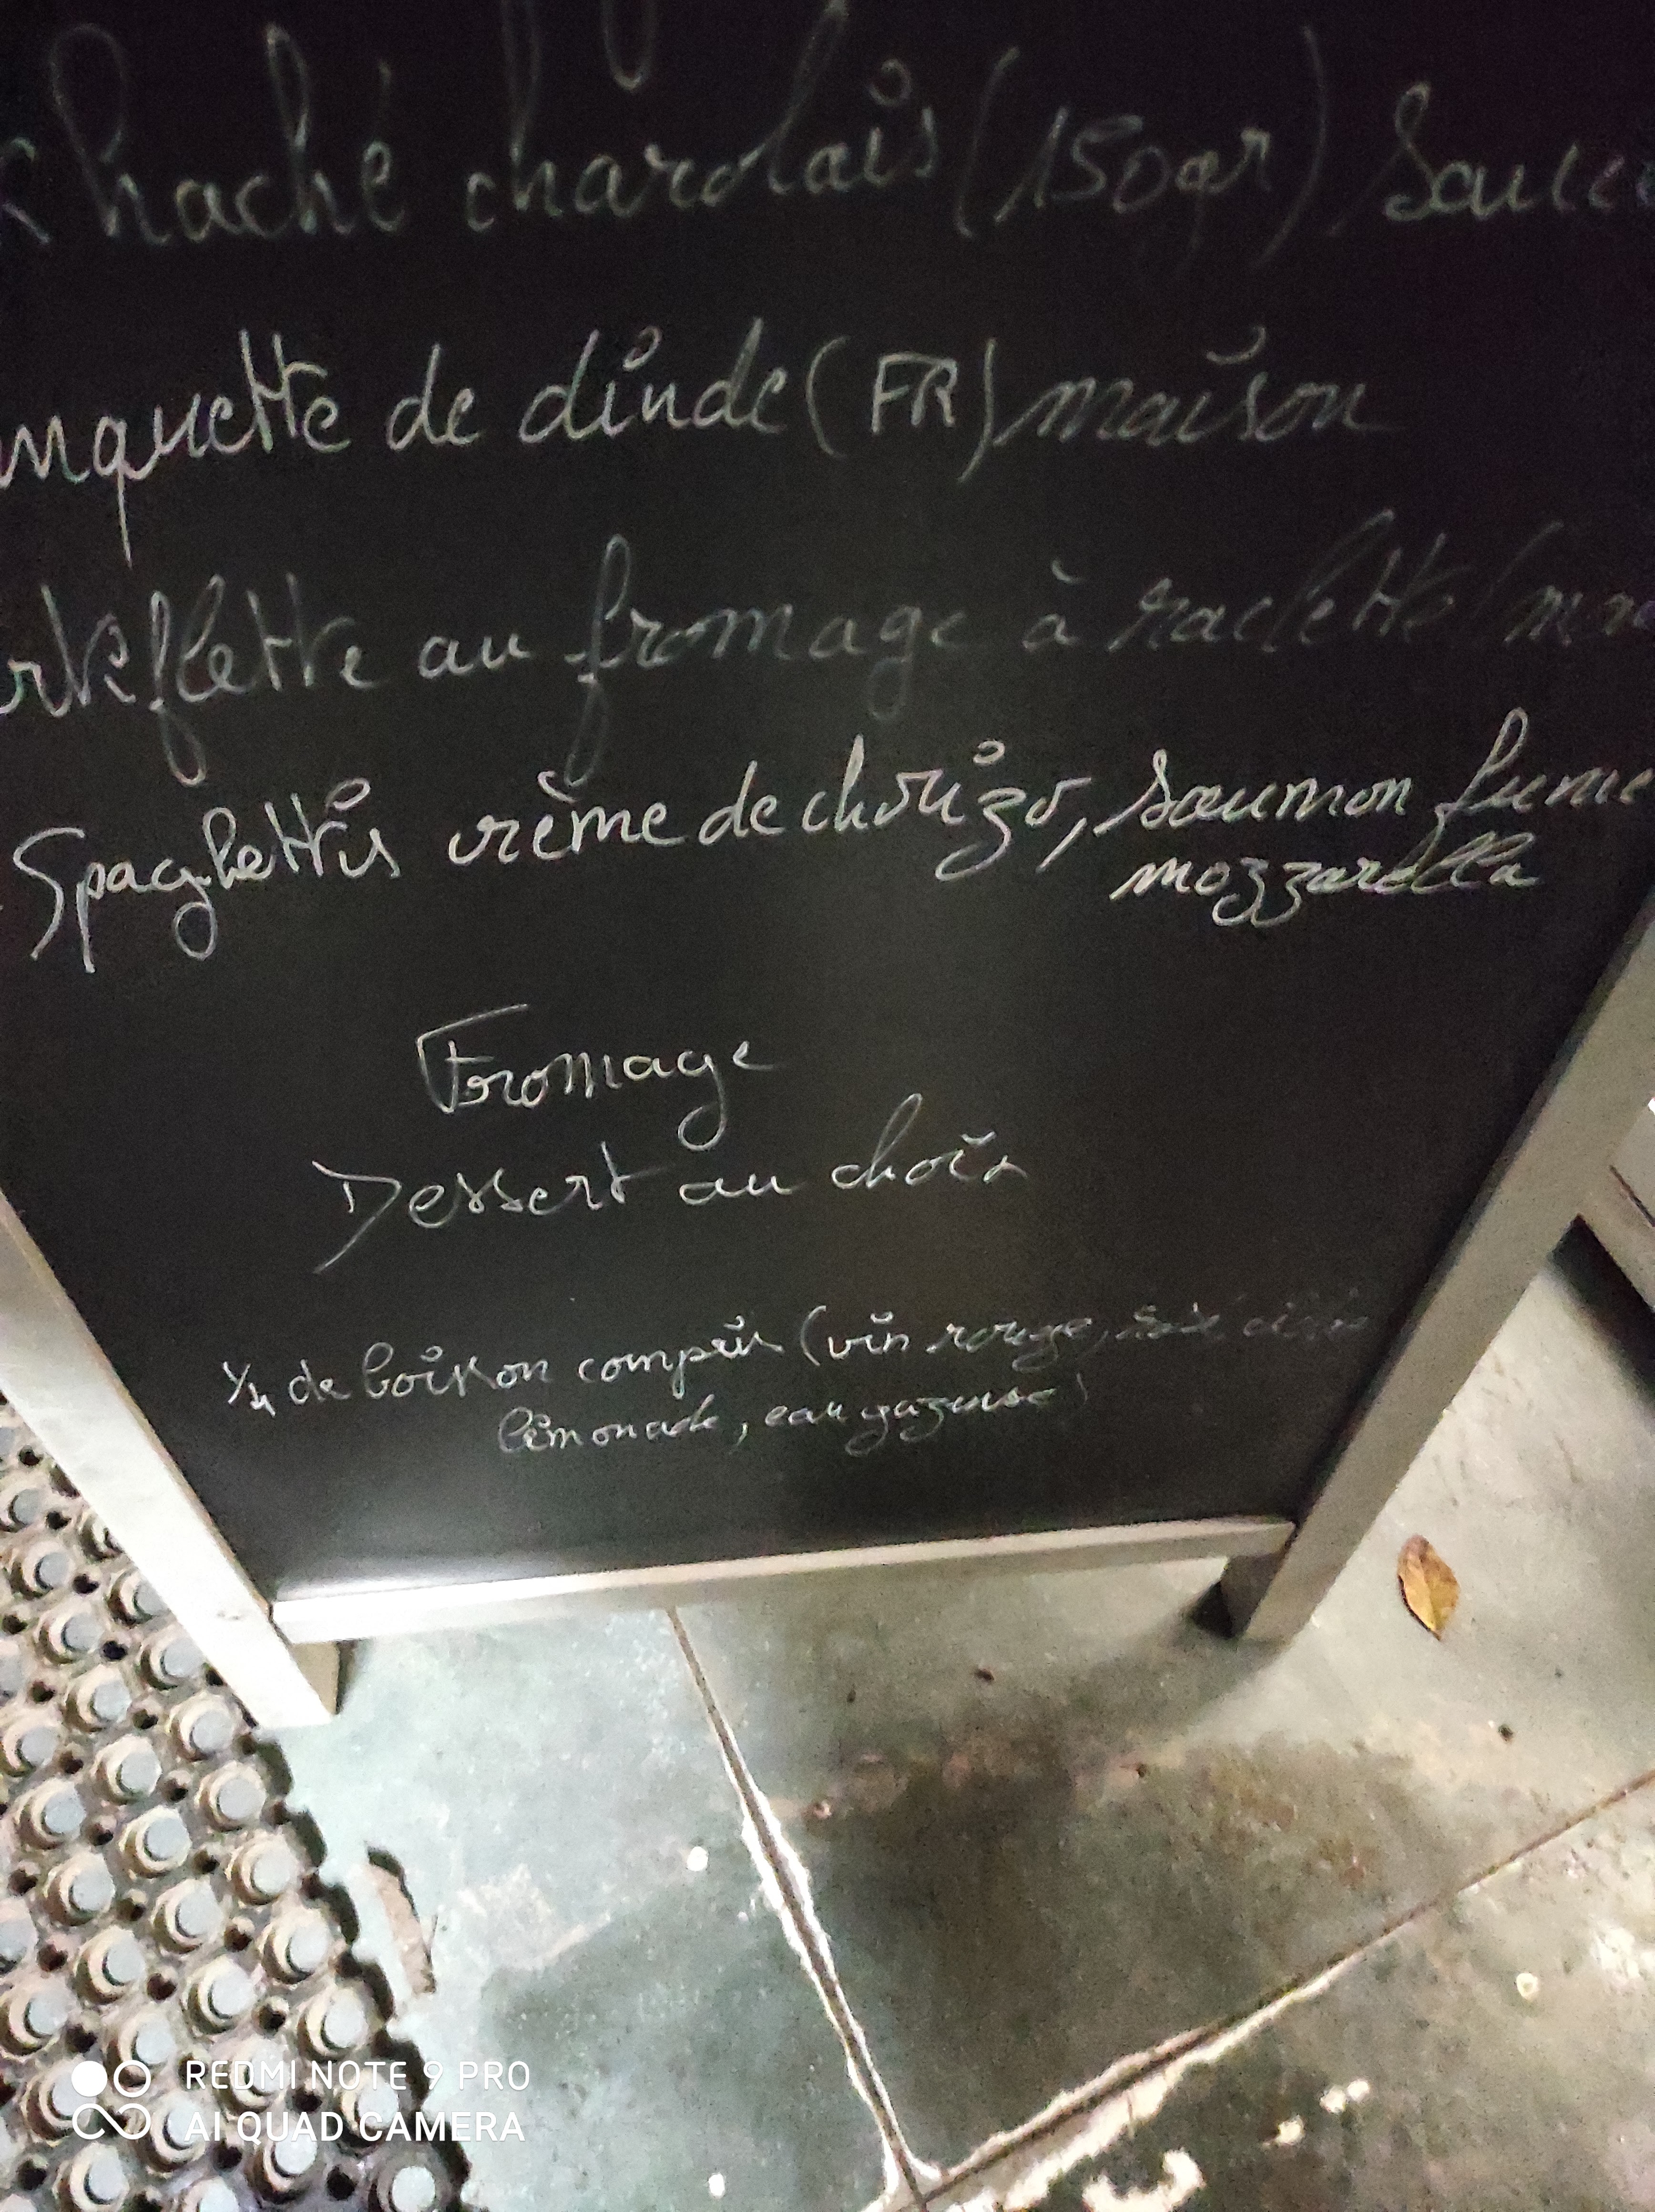 haché charolais (150gr) Sauce
nquette de dinde (FR) maison
rtiflette au fromage à raclette
Spaghettis crème de chorizo, saumon fumé
mozzarella
Fromage
Dessert au choix
1/4 de boisson compris (vin rouge,
limonade, eau gazeuse)
REDMI NOTE 9 PRO
AI QUAD CAMERA